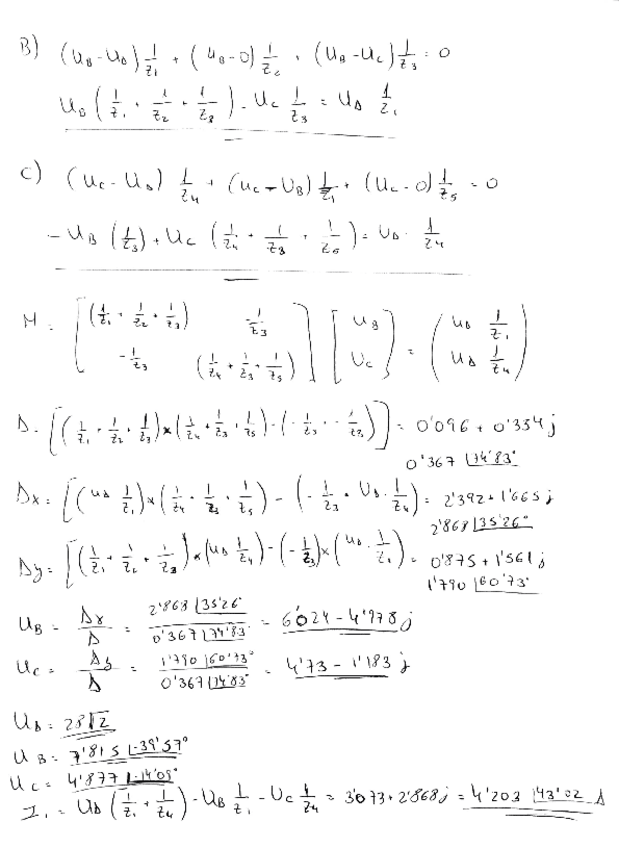 B) (U_B-U_D) 1/Z_1 + (U_B-0) 1/Z_2 + (U_B-U_C) 1/Z_3 = 0
U_B (1/Z_1 + 1/Z_2 + 1/Z_3) - U_C 1/Z_3 = U_D 1/Z_1
C) (U_C-U_D) 1/Z_4 + (U_C-U_B) 1/Z_1 + (U_C-0) 1/Z_5 = 0
-U_B (1/Z_3) + U_C (1/Z_4 + 1/Z_3 + 1/Z_5) = U_D · 1/Z_4
M = [(1/Z_1 + 1/Z_2 + 1/Z_3) -1/Z_3 ; -1/Z_3 (1/Z_4 + 1/Z_3 + 1/Z_5)] [U_B ; U_C] = (U_D 1/Z_1 ; U_D 1/Z_4)
Δ = [(1/Z_1 + 1/Z_2 + 1/Z_3) × (1/Z_4 + 1/Z_3 + 1/Z_5) - (-1/Z_3 · -1/Z_3)] = 0'096 + 0'354j
0'367 |74'83°
Δx = [(U_D 1/Z_1) × (1/Z_4 + 1/Z_3 + 1/Z_5) - (-1/Z_3 · U_D · 1/Z_4) = 2'392 + 1'665j
2'868 |35'26°
Δy = [(1/Z_1 + 1/Z_2 + 1/Z_3) × (U_D 1/Z_4) - (-1/Z_3) × (U_D · 1/Z_1) = 0'875 + 1'561j
1'790 |60'73°
U_B = Δx/Δ = 2'868 |35'26° / 0'367 |74'83° = 6'024 - 4'978j
U_C = Δy/Δ = 1'790 |60'73° / 0'367 |74'83° = 4'73 - 1'183j
U_D = 28√2
U_B = 7'815 |-39'57°
U_C = 4'877 |-14'09°
I_1 = U_D (1/Z_1 + 1/Z_4) - U_B 1/Z_1 - U_C 1/Z_4 = 3'073 + 2'868j = 4'203 |43'02 A